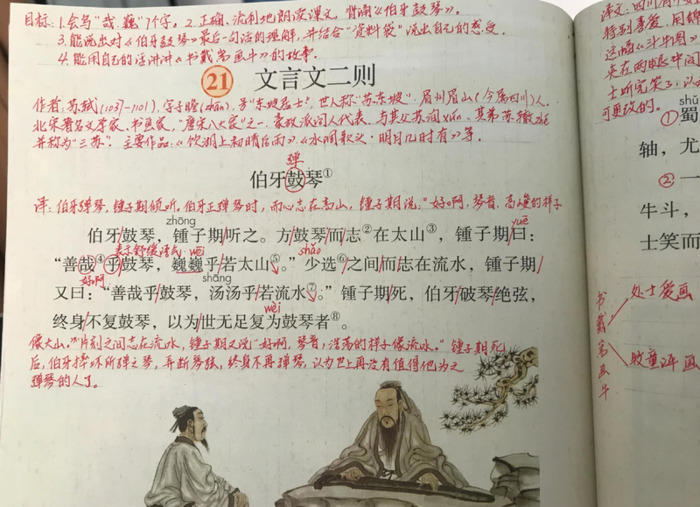 目标：1.会写“哉、巍”7个字。2.正确、流利地朗读课文，背诵《伯牙鼓琴》。
3.能说出对《伯牙鼓琴》最后一句话的理解，并结合“资料袋”说出自己的感受。
4.能用自己的话讲讲《书戴嵩画斗牛》的故事。
21 文言文二则
作者：苏轼(1037-1101)，字子瞻(zhān)，号“东坡居士”，世人称“苏东坡”。眉州眉山(今属四川)人。
北宋著名文学家、书画家，“唐宋八大家”之一，豪放派词人代表。与其父苏洵xún、其弟苏辙
并称为“三苏”。主要作品：《饮湖上初晴后雨》、《水调歌头·明月几时有》等。
弹
伯牙鼓琴①
译：伯牙弹琴，锺子期倾听，伯牙正弹琴时，而心志在高山，锺子期说：“好啊，琴音，高峻的样子
zhōng
yuē
伯牙鼓琴，锺子期听之。方鼓琴而志②在太山③，锺子期曰：
wéi
shǎo
“善哉④乎鼓琴，巍巍乎若太山⑤。”少选⑥之间而志在流水，锺子期
好啊
shāng
又曰：“善哉乎鼓琴，汤汤乎若流水⑦。”锺子期死，伯牙破琴绝弦，
wéi
终身不复鼓琴，以为世无足复为鼓琴者⑧。
像大山。”片刻之间志在流水，锺子期又说：“好啊，琴音，浩荡的样子像流水。”锺子期死
后，伯牙摔坏所弹之琴，弄断琴弦，终身不再弹琴，认为世上再没有值得他为之
弹琴的人了。
译文：四川有个
特别喜爱，用锦
可更改的。
shǔ
①蜀
轴，尤
②一
牛斗，
士笑而
书戴嵩画斗
处士爱画
牧童评画